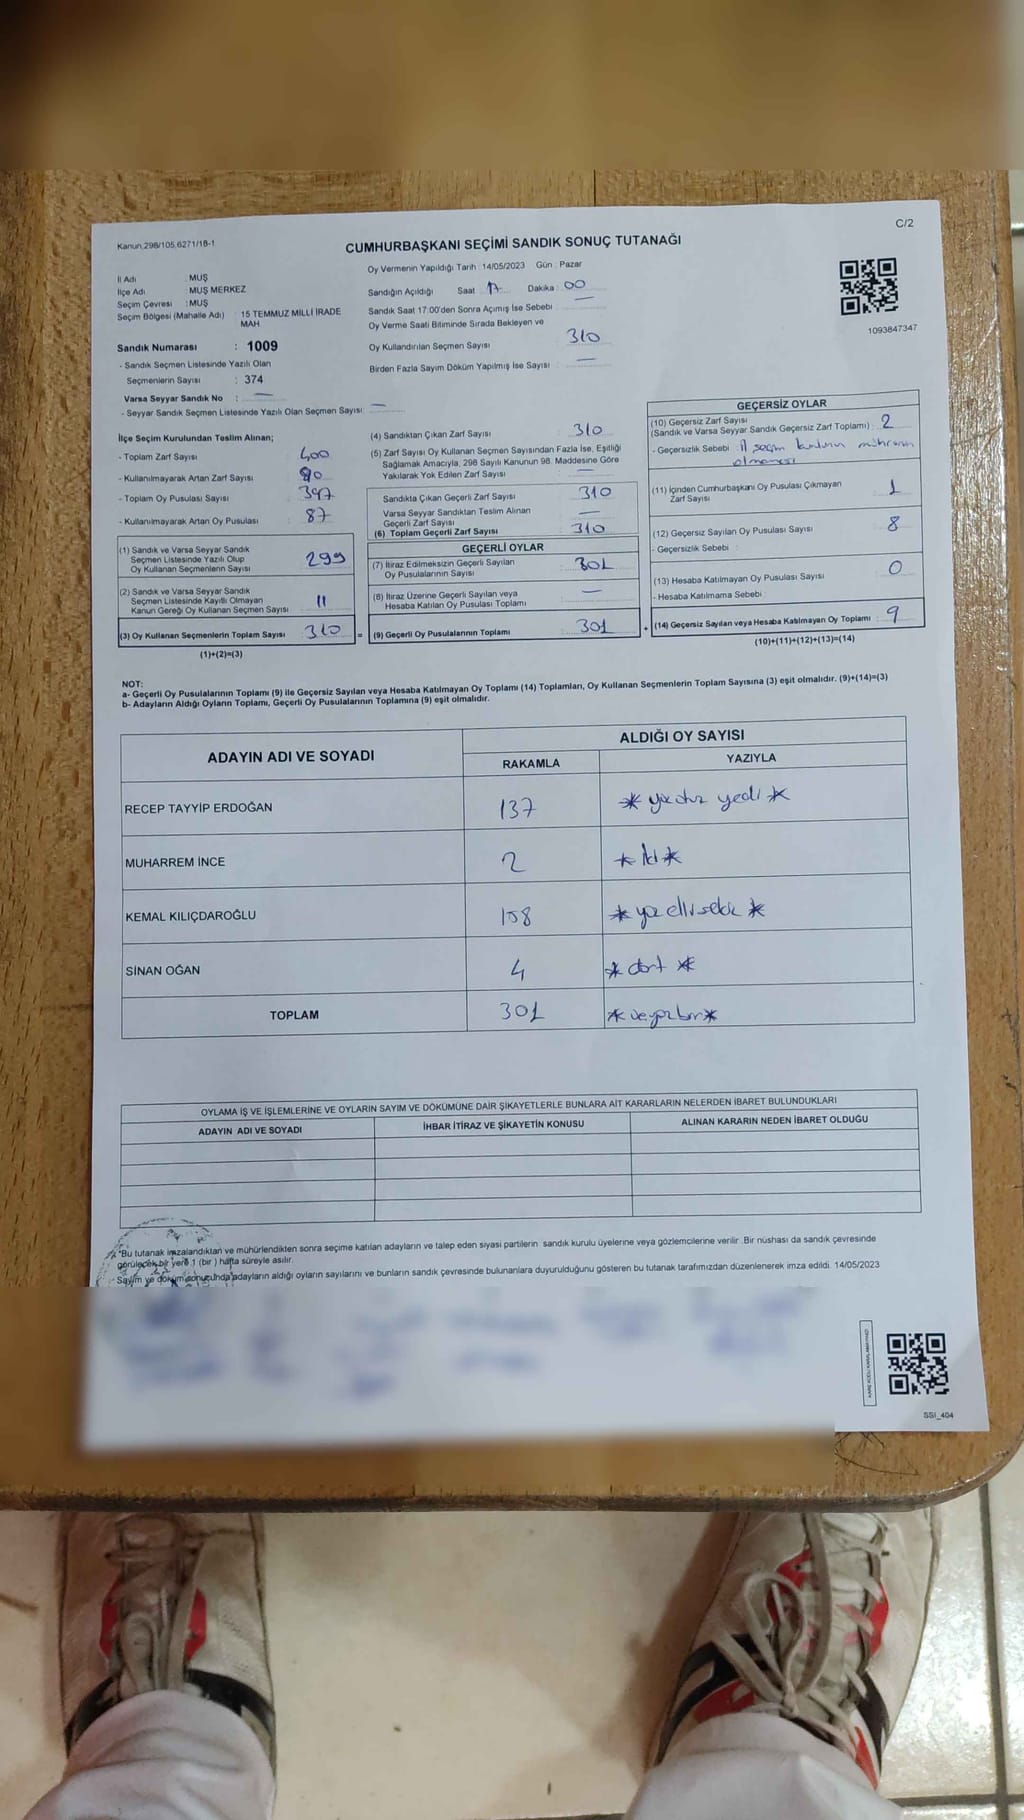 C/2
Kanun 298/105,6271/18-1
CUMHURBAŞKANI SEÇİMİ SANDIK SONUÇ TUTANAĞI
İl Adı : MUŞ
İlçe Adı : MUŞ MERKEZ
Seçim Çevresi : MUŞ
Seçim Bölgesi (Mahalle Adı) : 15 TEMMUZ MİLLİ İRADE
MAH
Sandık Numarası : 1009
- Sandık Seçmen Listesinde Yazılı Olan
Seçmenlerin Sayısı : 374
Varsa Seyyar Sandık No : —
- Seyyar Sandık Seçmen Listesinde Yazılı Olan Seçmen Sayısı: —
Oy Vermenin Yapıldığı Tarih : 14/05/2023 Gün : Pazar
Sandığın Açıldığı Saat 17 Dakika : 00
Sandık Saat 17:00'den Sonra Açımış İse Sebebi : —
Oy Verme Saati Bitiminde Sırada Bekleyen ve
Oy Kullandırılan Seçmen Sayısı : 310
Birden Fazla Sayım Döküm Yapılmış İse Sayısı : —
1093847347
İlçe Seçim Kurulundan Teslim Alınan;
- Toplam Zarf Sayısı : 400
- Kullanılmayarak Artan Zarf Sayısı : 90
- Toplam Oy Pusulası Sayısı : 397
- Kullanılmayarak Artan Oy Pusulası : 87
(1) Sandık ve Varsa Seyyar Sandık
Seçmen Listesinde Yazılı Olup
Oy Kullanan Seçmenlerin Sayısı : 299
(2) Sandık ve Varsa Seyyar Sandık
Seçmen Listesinde Kayıtlı Olmayan
Kanun Gereği Oy Kullanan Seçmen Sayısı : 11
(3) Oy Kullanan Seçmenlerin Toplam Sayısı : 310 =
(1)+(2)=(3)
(4) Sandıktan Çıkan Zarf Sayısı : 310
(5) Zarf Sayısı Oy Kullanan Seçmen Sayısından Fazla İse, Eşitliği
Sağlamak Amacıyla, 298 Sayılı Kanunun 98. Maddesine Göre
Yakılarak Yok Edilen Zarf Sayısı : —
Sandıkta Çıkan Geçerli Zarf Sayısı : 310
Varsa Seyyar Sandıktan Teslim Alınan
Geçerli Zarf Sayısı : —
(6) Toplam Geçerli Zarf Sayısı : 310
GEÇERLİ OYLAR
(7) İtiraz Edilmeksizin Geçerli Sayılan
Oy Pusulalarının Sayısı : 301
(8) İtiraz Üzerine Geçerli Sayılan veya
Hesaba Katılan Oy Pusulası Toplamı : —
(9) Geçerli Oy Pusulalarının Toplamı : 301 +
GEÇERSİZ OYLAR
(10) Geçersiz Zarf Sayısı
(Sandık ve Varsa Seyyar Sandık Geçersiz Zarf Toplamı) : 2
- Geçersizlik Sebebi : il seçim kurulunun mührünün
olmaması
(11) İçinden Cumhurbaşkanı Oy Pusulası Çıkmayan
Zarf Sayısı : 1
(12) Geçersiz Sayılan Oy Pusulası Sayısı : 8
- Geçersizlik Sebebi :
(13) Hesaba Katılmayan Oy Pusulası Sayısı : 0
- Hesaba Katılmama Sebebi :
(14) Geçersiz Sayılan veya Hesaba Katılmayan Oy Toplamı : 9
(10)+(11)+(12)+(13)=(14)
NOT:
a- Geçerli Oy Pusulalarının Toplamı (9) ile Geçersiz Sayılan veya Hesaba Katılmayan Oy Toplamı (14) Toplamları, Oy Kullanan Seçmenlerin Toplam Sayısına (3) eşit olmalıdır. (9)+(14)=(3)
b- Adayların Aldığı Oyların Toplamı, Geçerli Oy Pusulalarının Toplamına (9) eşit olmalıdır.
ADAYIN ADI VE SOYADI ALDIĞI OY SAYISI
RAKAMLA YAZIYLA
RECEP TAYYİP ERDOĞAN 137 * yüzotuz yedi *
MUHARREM İNCE 2 * iki *
KEMAL KILIÇDAROĞLU 158 * yüz ellisekiz *
SİNAN OĞAN 4 * dört *
TOPLAM 301 * üçyüzbir *
OYLAMA İŞ VE İŞLEMLERİNE VE OYLARIN SAYIM VE DÖKÜMÜNE DAİR ŞİKAYETLERLE BUNLARA AİT KARARLARIN NELERDEN İBARET BULUNDUKLARI
ADAYIN ADI VE SOYADI İHBAR İTİRAZ VE ŞİKAYETİN KONUSU ALINAN KARARIN NEDEN İBARET OLDUĞU
"Bu tutanak imzalandıktan ve mühürlendikten sonra seçime katılan adayların ve talep eden siyasi partilerin sandık kurulu üyelerine veya gözlemcilerine verilir. Bir nüshası da sandık çevresinde
görülecek bir yere 1 (bir ) hafta süreyle asılır.
Sayım ve döküm sonucunda adayların aldığı oyların sayılarını ve bunların sandık çevresinde bulunanlara duyurulduğunu gösteren bu tutanak tarafımızdan düzenlenerek imza edildi. 14/05/2023
SSI_404